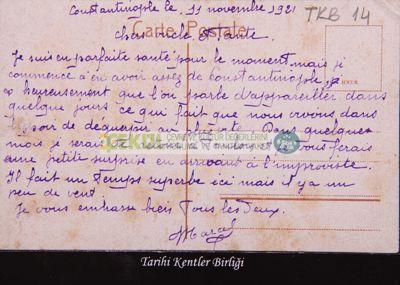 Constantinople le, 11 novembre 1921
TKB 14
Carte Postale
Chers oncle et tante.
Je suis en parfaite santé pour le moment mais je
commence à en avoir assez de Constantinople,
heureusement que l'on parle d'appareiller dans
quelques jours ce qui fait que nous avons dans
l'espoir de Dans quelques
mais je serai vous ferais
une petite surprise en arrivant à l'improviste.
Il fait un temps superbe ici mais il y a un
peu de vent.
Je vous embrasse bien Tous les deux.
Marcel
ÇEKÜL
Tarihi Kentler Birliği